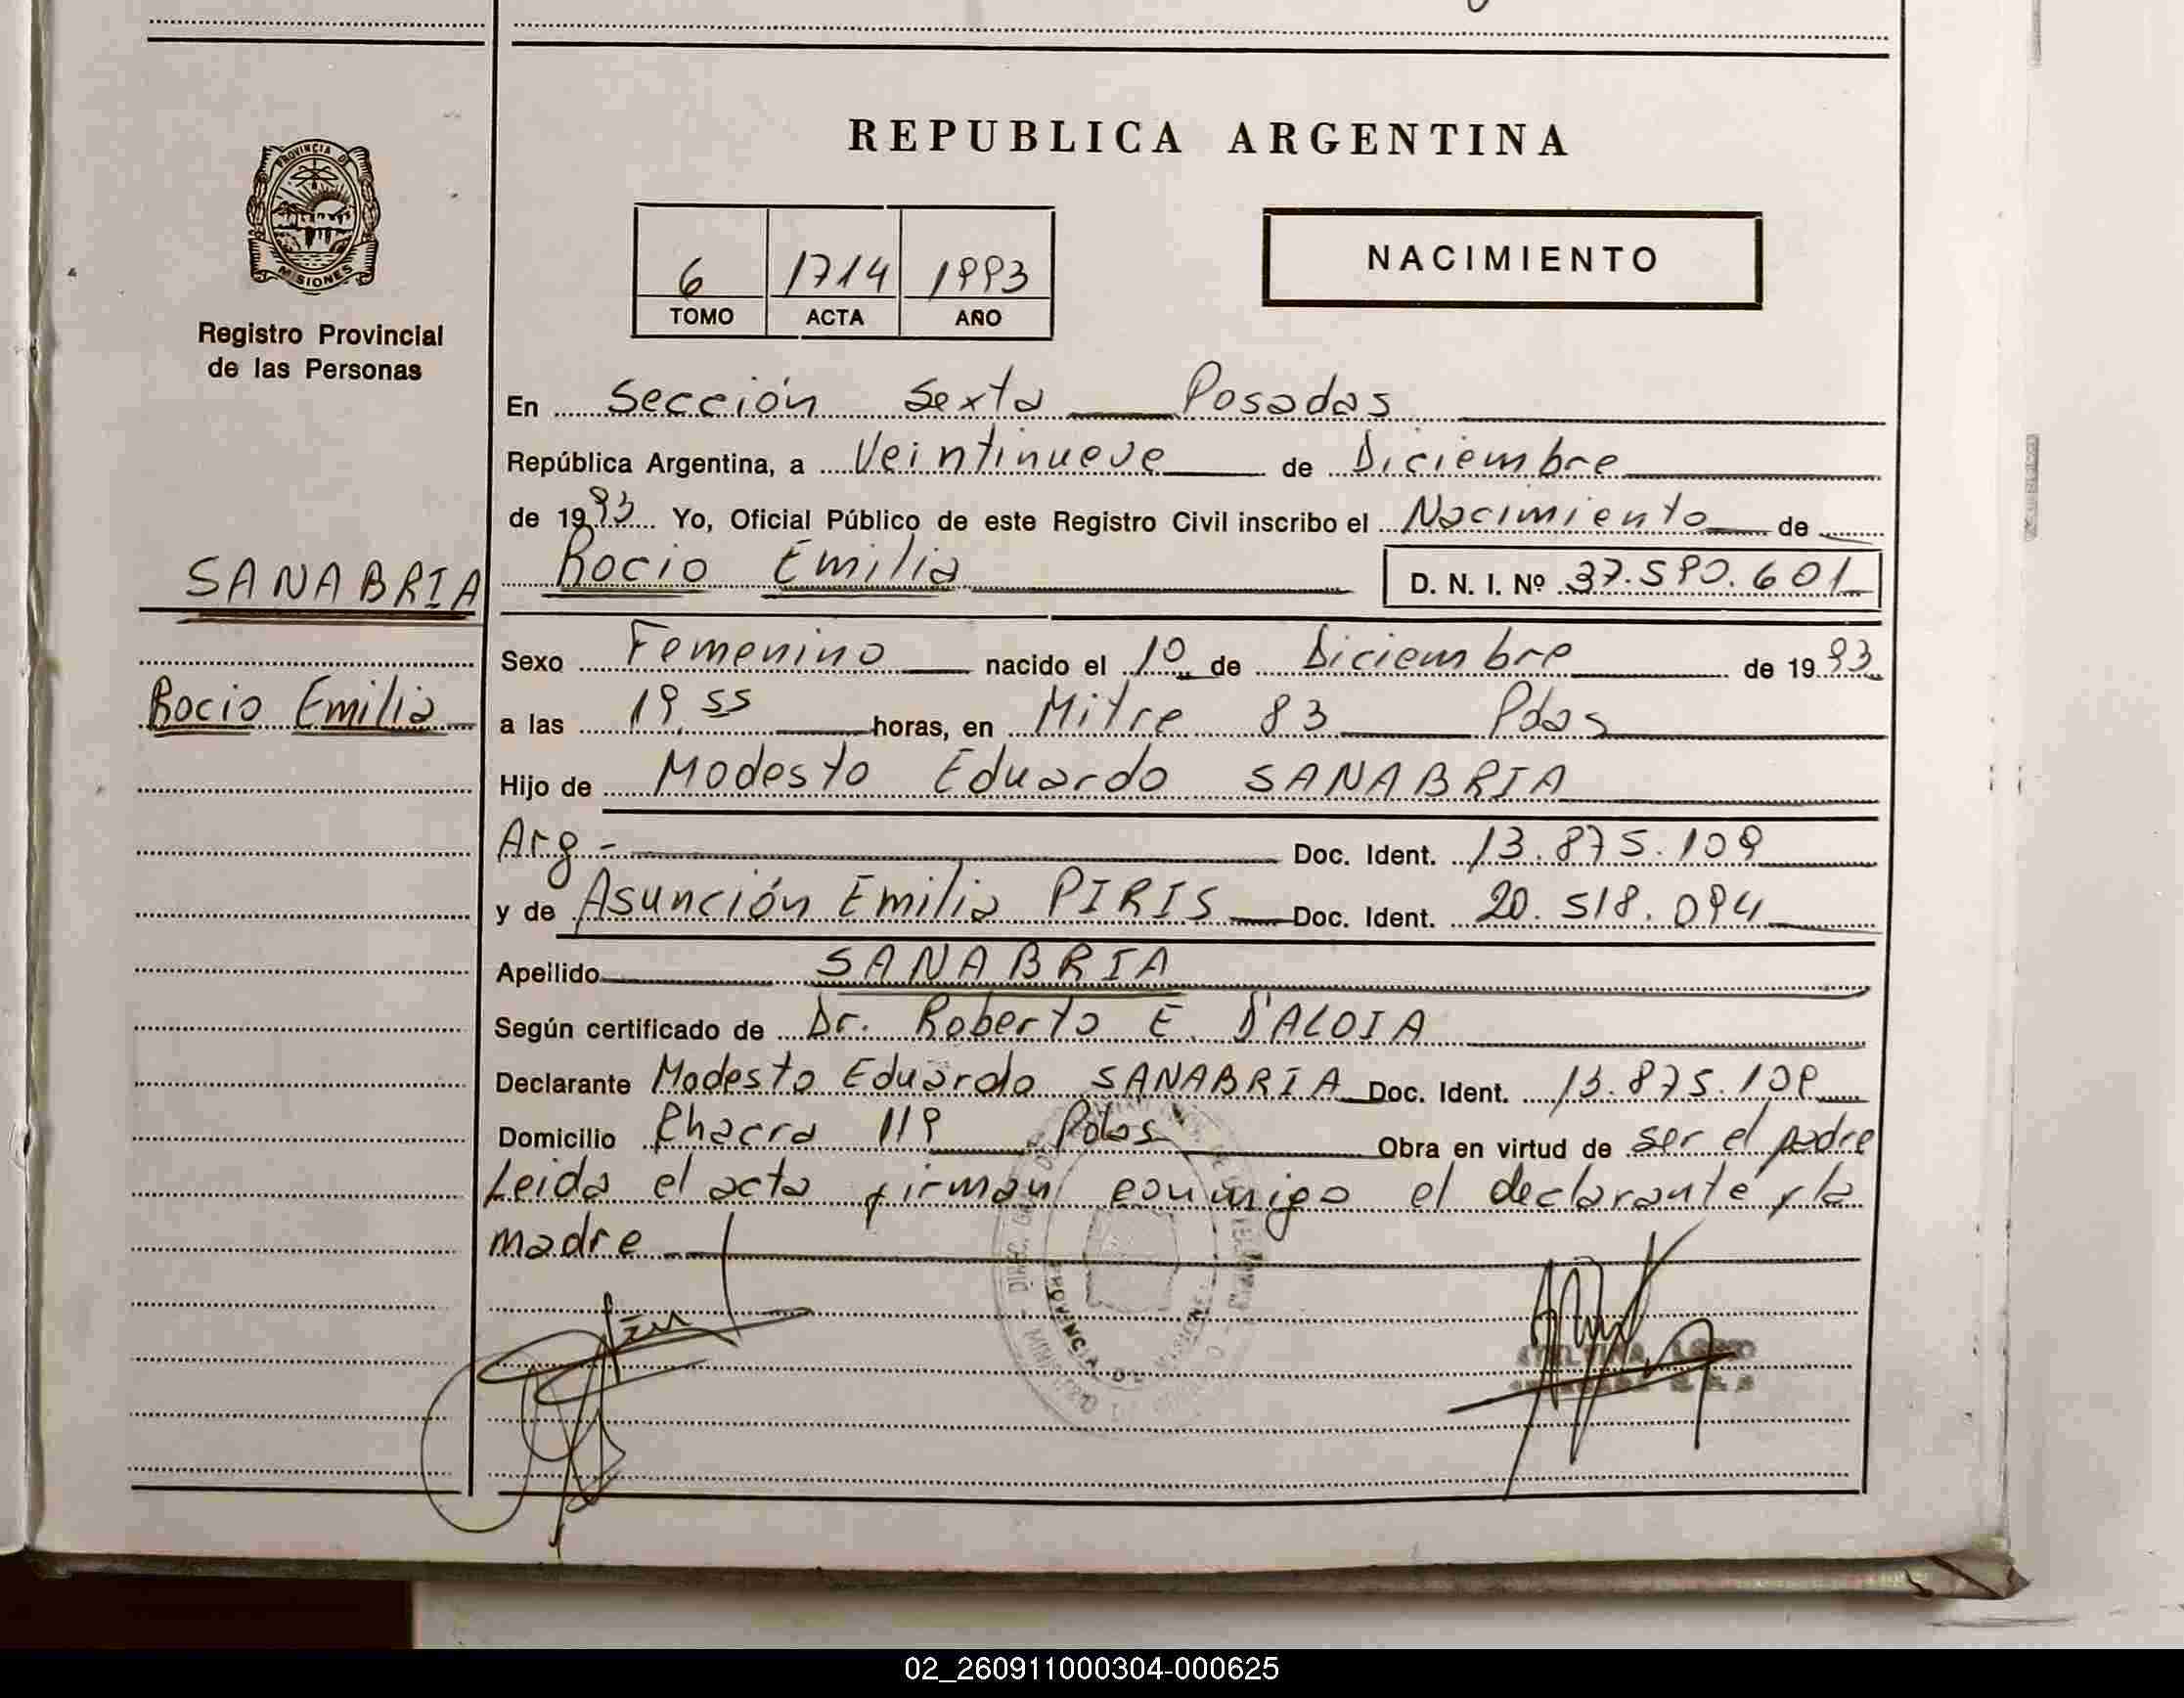 REPUBLICA ARGENTINA
PROVINCIA DE
MISIONES
Registro Provincial
de las Personas
6 1714 1993
TOMO ACTA AÑO
NACIMIENTO
En Sección Sexta Posadas
República Argentina, a Veintinueve de Diciembre
de 1993 Yo, Oficial Público de este Registro Civil inscribo el Nacimiento de
SANABRIA
Rocio Emilia D. N. I. Nº 37.590.601
Sexo Femenino nacido el 10 de Diciembre de 1993
Rocio Emilia
a las 19,55 horas, en Mitre 83 Pdas
Hijo de Modesto Eduardo SANABRIA
Arg - Doc. Ident. 13.875.109
y de Asunción Emilia PIRIS Doc. Ident. 20.518.094
Apellido SANABRIA
Según certificado de Dr. Roberto E. D'ALOIA
Declarante Modesto Eduardo SANABRIA Doc. Ident. 13.875.109
Domicilio Chacra 119 Pdas Obra en virtud de ser el padre
Leida el acta firman conmigo el declarante y la
madre
PROVINCIA DE MISIONES
02_260911000304-000625